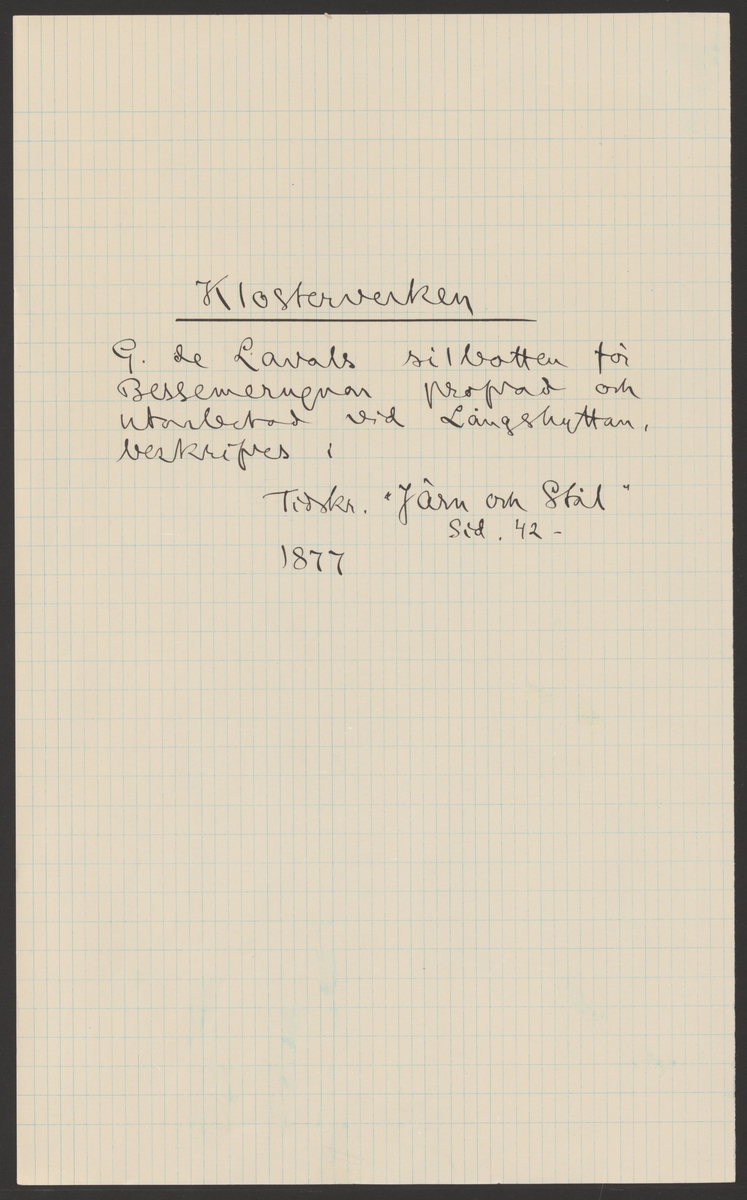 Klosterverken
G. de Lavals silbotten för
Bessemerugnar profvad och
utarbetad vid Långshyttan,
beskrifves i
Tidskr. "Järn och Stål"
Sid. 42 -
1877